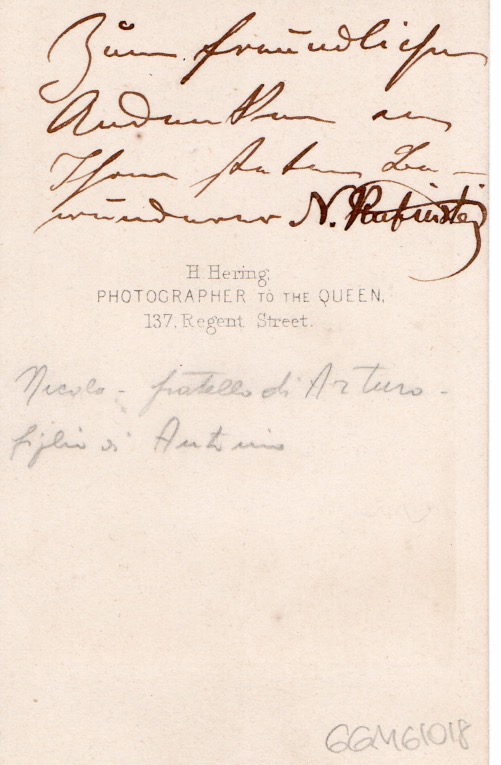 Zum freundlichen
Andenken an
Ihren steten Be-
wunderer N. Rubinstein
H. Hering,
PHOTOGRAPHER TO THE QUEEN,
137, Regent Street.
Nicola - fratello di Arturo -
figlio di Antonio
GGM61018